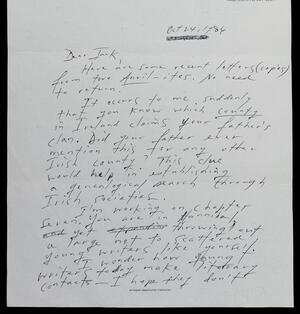 Oct 24, 1984
Dear Jack,
Here are some recent letters (copies)
from two Anvil-ites. No need
to return.
It occurs to me suddenly
that you know which county
in Ireland claims your father's
clan. Did your father ever
mention this for any other
Irish county? This clue
would help in establishing
a genealogical search through
Irish societies.
I'm working on Chapter
Seven. You are in Hannibal
and yet throwing out
a large net to scattered
young writers like yourself.
I wonder how young
writers today make literary
contacts — I hope they don't